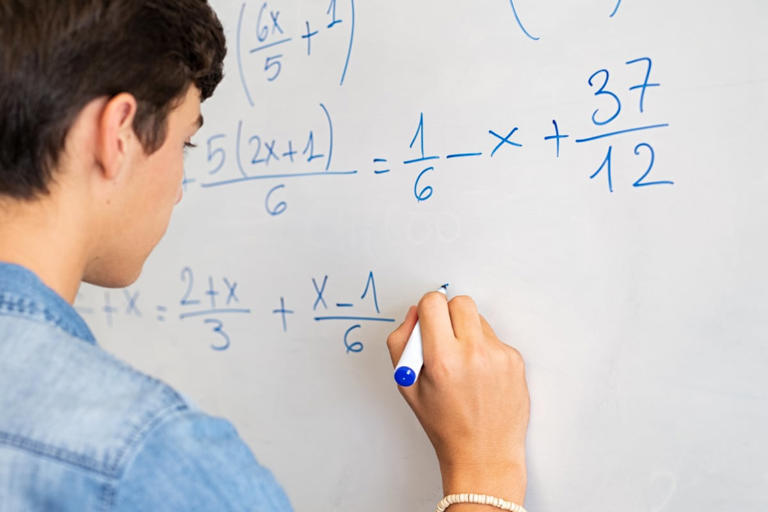 (6x/5 + 1)
+ 5(2x+1)/6 = 1/6 - x + 37/12
+ x = 2+x/3 + x-1/6